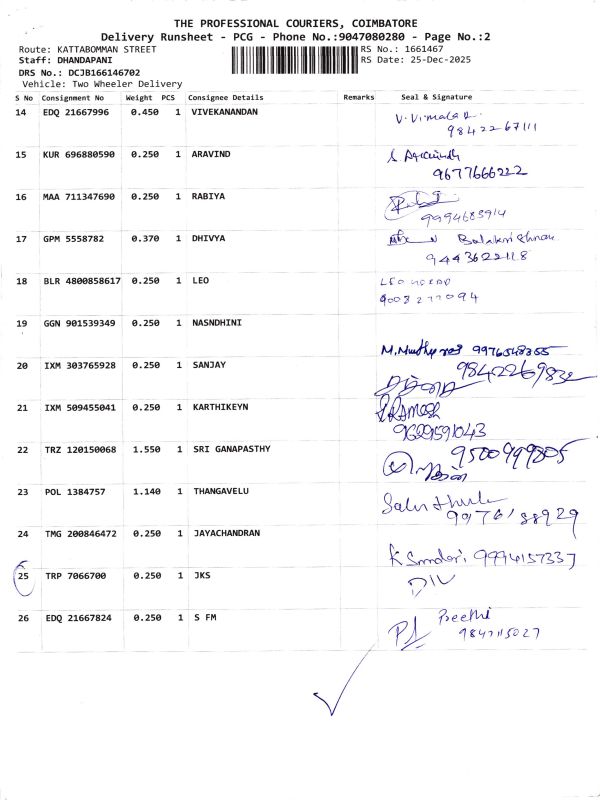 THE PROFESSIONAL COURIERS, COIMBATORE
Delivery Runsheet - PCG - Phone No.:9047080280 - Page No.:2
Route: KATTABOMMAN STREET RS No.: 1661467
Staff: DHANDAPANI RS Date: 25-Dec-2025
DRS No.: DCJB166146702
Vehicle: Two Wheeler Delivery
S No Consignment No Weight PCS Consignee Details Remarks Seal & Signature
14 EDQ 21667996 0.450 1 VIVEKANANDAN
9842267111
15 KUR 696880590 0.250 1 ARAVIND
9677666222
16 MAA 711347690 0.250 1 RABIYA
9994683914
17 GPM 5558782 0.370 1 DHIVYA
9443622118
18 BLR 4800858617 0.250 1 LEO
19 GGN 901539349 0.250 1 NASNDHINI
9976548355
20 IXM 303765928 0.250 1 SANJAY
9842269832
21 IXM 509455041 0.250 1 KARTHIKEYN
22 TRZ 120150068 1.550 1 SRI GANAPASTHY
9500999805
23 POL 1384757 1.140 1 THANGAVELU
24 TMG 200846472 0.250 1 JAYACHANDRAN
9994157337
25 TRP 7066700 0.250 1 JKS
26 EDQ 21667824 0.250 1 S FM
Preethi